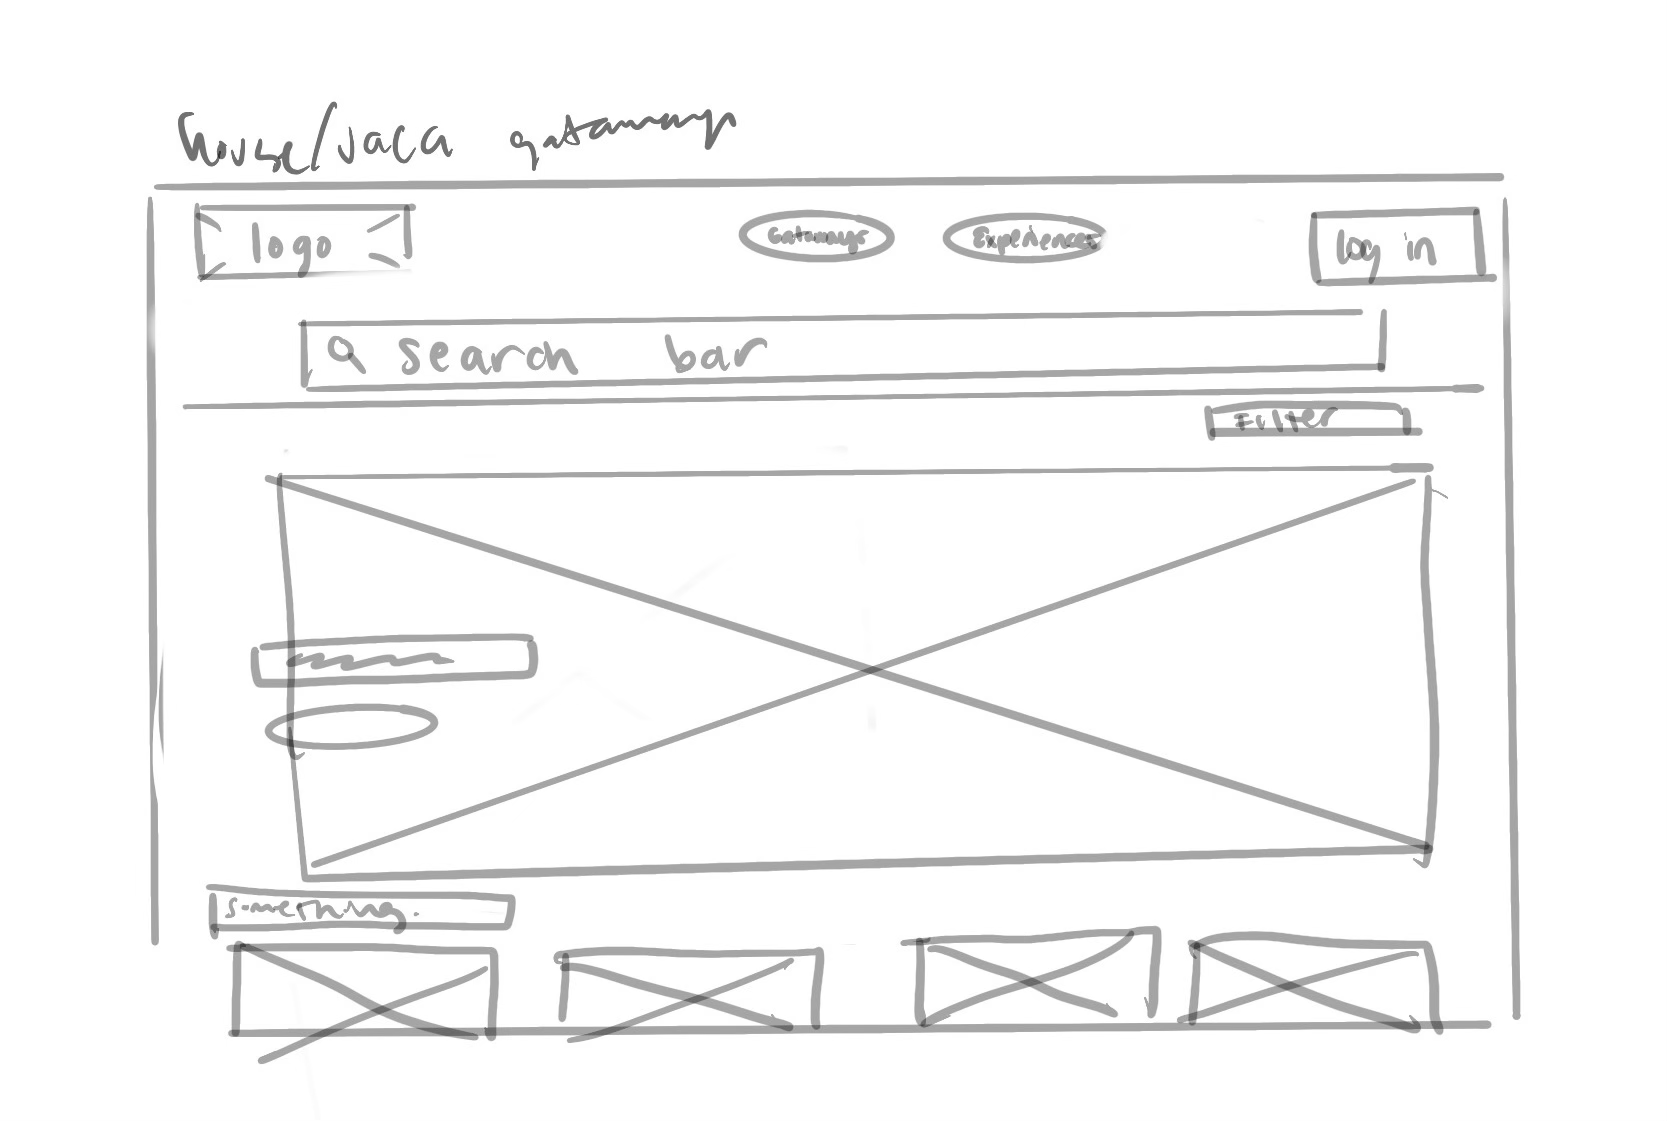 house/vaca gataways
logo
Gataways
Experiences
log in
search bar
Filter
something.